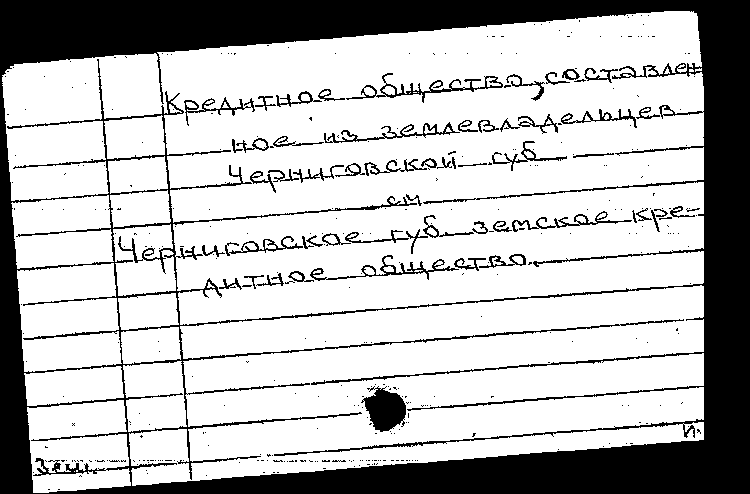 Кредитное общество, составлен-
ное из землевладельцев
Черниговской губ
см
Черниговское губ. земское кре-
дитное общество.
И.